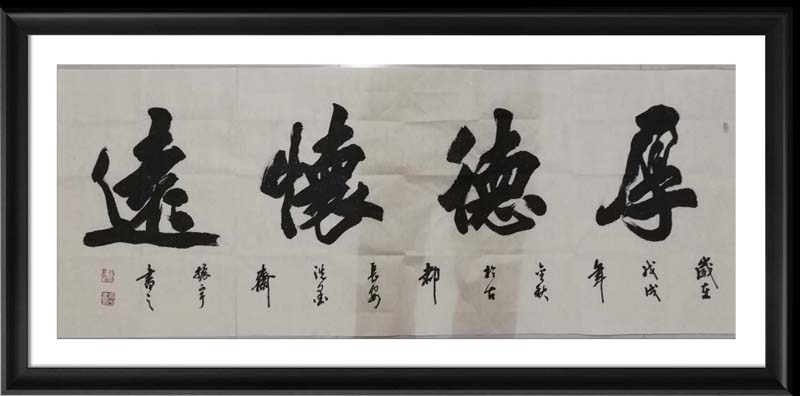 厚德懷遠
歲在
戊戌
年
金秋
於古
都
長安
洗墨
齋
振宇
書之